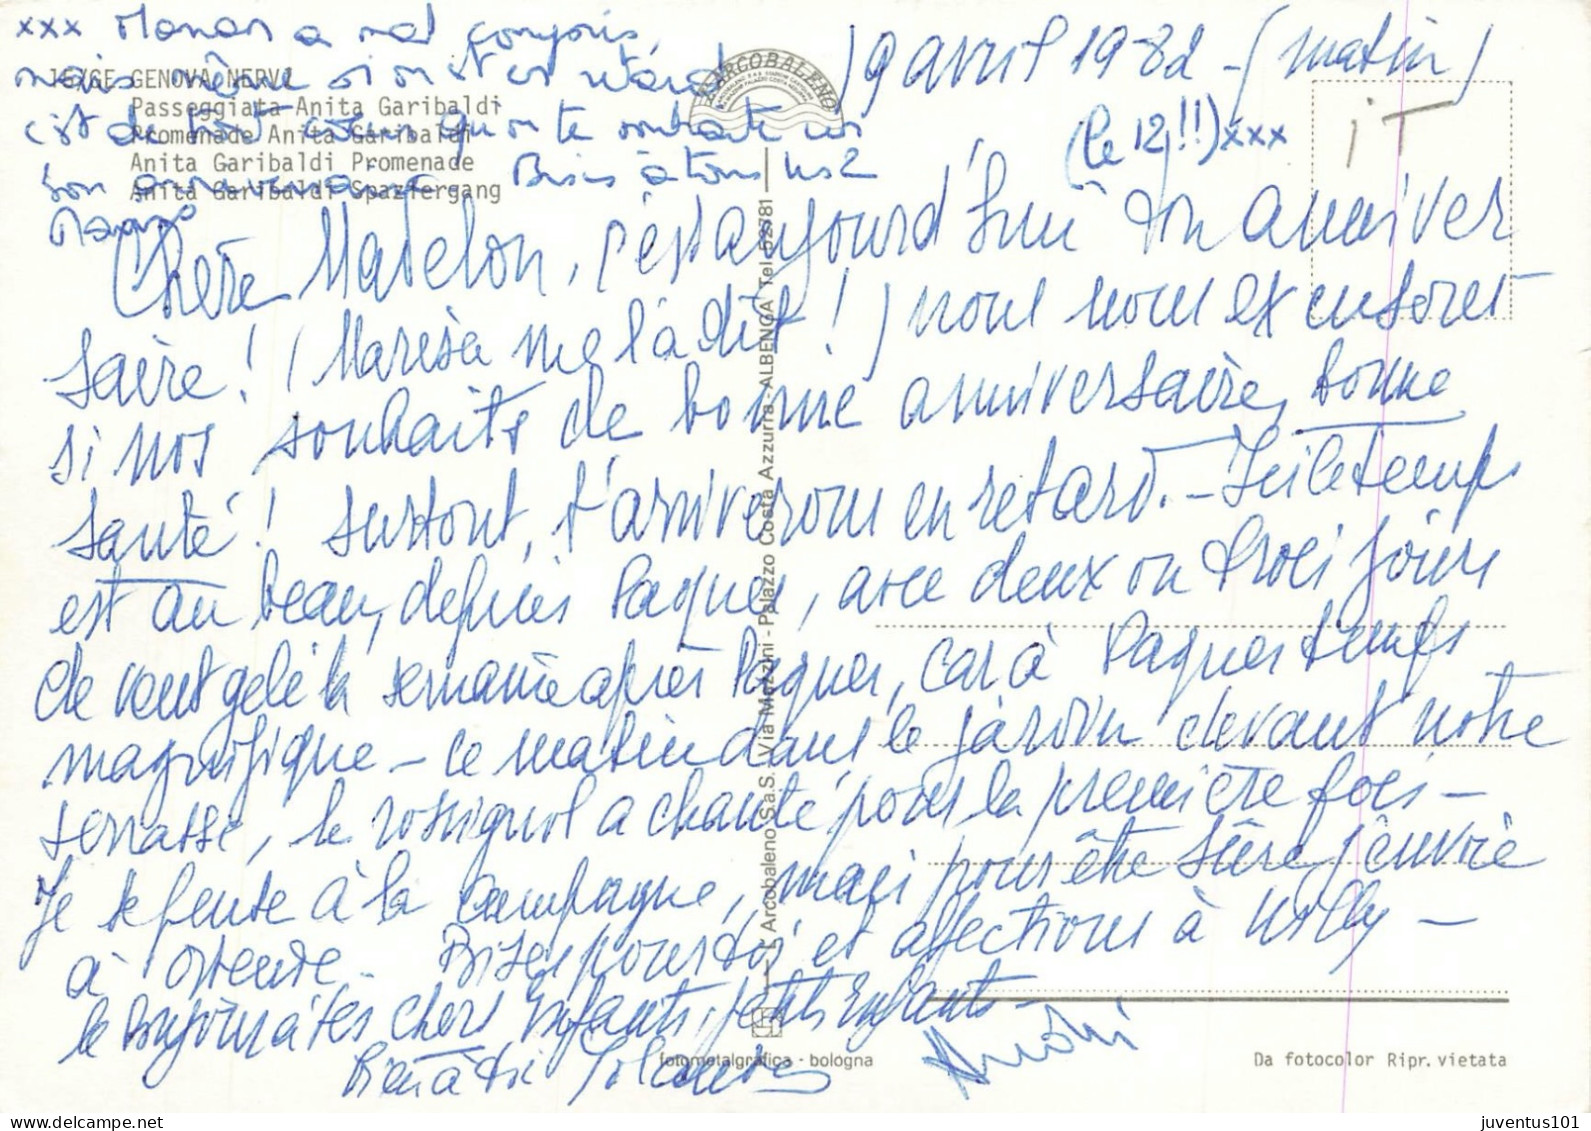 xxx Manon a mal compris,
mais même si on est en retard
c'est de tout cœur qu'on te souhaite un
bon anniversaire. Bises à tous les 2
16/GE GENOVA NERVI
Passeggiata Anita Garibaldi
Promenade Anita Garibaldi
Anita Garibaldi Promenade
Anita Garibaldi Spaziergang
L'ARCOBALENO
19 avril 1982 - (matin)
(le 12!!) xxx
iT
Chère Madelon, c'est aujourd'hui ton anniver
saire! (Marisa me l'a dit!) nous nous excusons
si nos souhaits de bonne anniversaire, bonne
santé! surtout, t'arriverons en retard. - Ici le temps
est au beau, depuis Paques, avec deux ou trois jours
de vent gelé la semaine après Paques, car à Paques temps
magnifique - ce matin dans le jardin devant notre
terrasse, le rossignol a chanté pour la première fois -
Je te pense à la campagne, mais pour être sûre j'envoie
à Ostende - Bises pour toi et affections à Willy -
le bonjour à tes chers Enfants, petits Enfants -
Bien à toi
L'Arcobaleno S.a.S. Via Mazzini - Palazzo Costa Azzurra - ALBENGA Tel. 52781
fotometalgrafica - bologna
Da fotocolor Ripr. vietata
juventus101